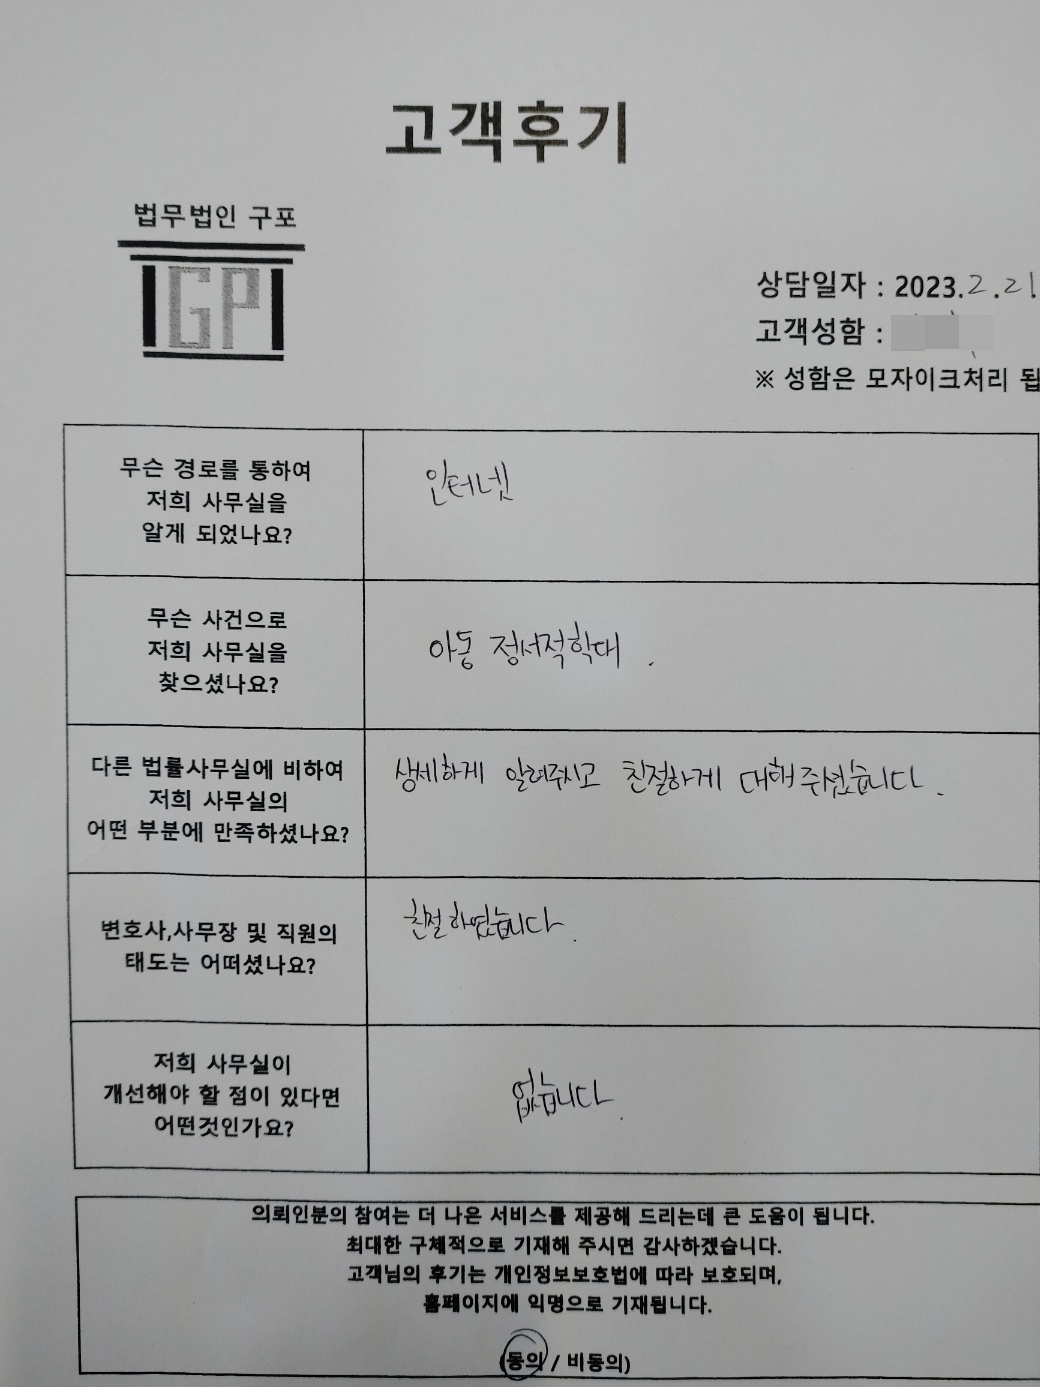 고객후기
법무법인 구포
GP
상담일자 : 2023.2.21.
고객성함 :
※ 성함은 모자이크처리 됩
무슨 경로를 통하여
저희 사무실을
알게 되었나요?
인터넷
무슨 사건으로
저희 사무실을
찾으셨나요?
아동 정서적학대.
다른 법률사무실에 비하여
저희 사무실의
어떤 부분에 만족하셨나요?
상세하게 알려주시고 친절하게 대해주셨습니다.
변호사,사무장 및 직원의
태도는 어떠셨나요?
친절하였습니다.
저희 사무실이
개선해야 할 점이 있다면
어떤것인가요?
없습니다.
의뢰인분의 참여는 더 나은 서비스를 제공해 드리는데 큰 도움이 됩니다.
최대한 구체적으로 기재해 주시면 감사하겠습니다.
고객님의 후기는 개인정보보호법에 따라 보호되며,
홈페이지에 익명으로 기재됩니다.
(동의 / 비동의)